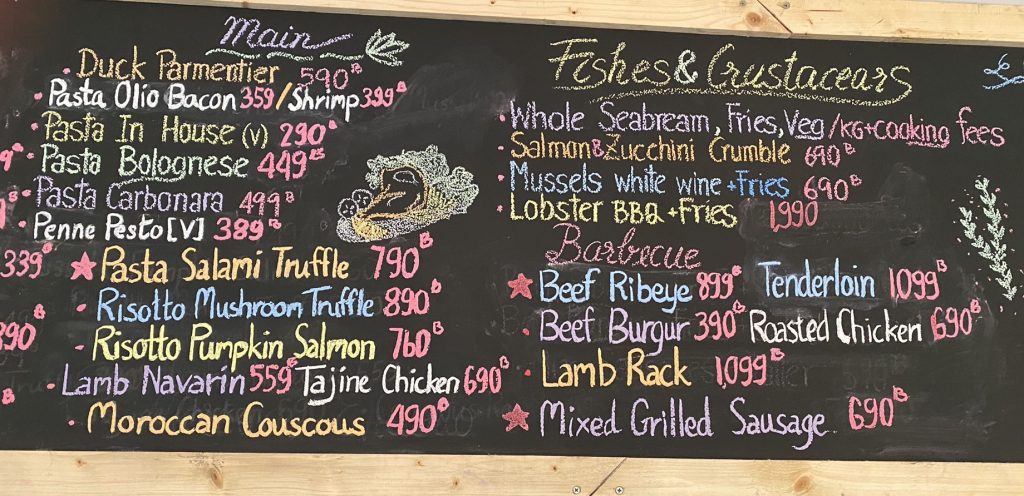 Main
Duck Parmentier 590฿
Pasta Olio Bacon 359/Shrimp 399฿
Pasta In House (V) 290฿
Pasta Bolognese 449฿
Pasta Carbonara 499฿
Penne Pesto [V] 389฿
339฿
Pasta Salami Truffle 790฿
Risotto Mushroom Truffle 890฿
Risotto Pumpkin Salmon 760฿
Lamb Navarin 559฿ Tajine Chicken 690฿
Moroccan Couscous 490฿
Fishes & Crustacears
Whole Seabream, Fries, Veg /KG+cooking fees
Salmon&Zucchini Crumble 690฿
Mussels white wine +Fries 690฿
Lobster BBQ +Fries 1,990
Barbecue
Beef Ribeye 899฿ Tenderloin 1,099฿
Beef Burgur 390฿ Roasted Chicken 690฿
Lamb Rack 1,099฿
Mixed Grilled Sausage 690฿